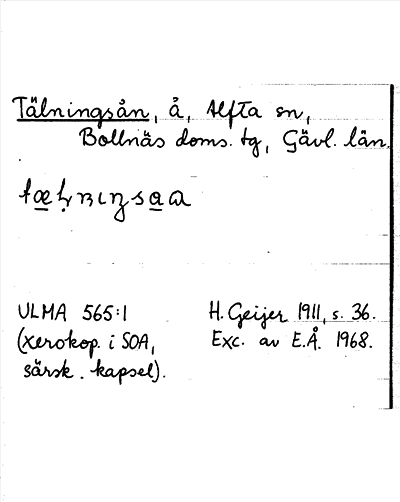 Tälningsån, å, Alfta sn,
Bollnäs doms. tg, Gävl. län.
ULMA 565:1
(xerokop. i SOA,
särsk. kapsel).
H. Geijer 1911, s. 36.
Exc. av E.Å. 1968.